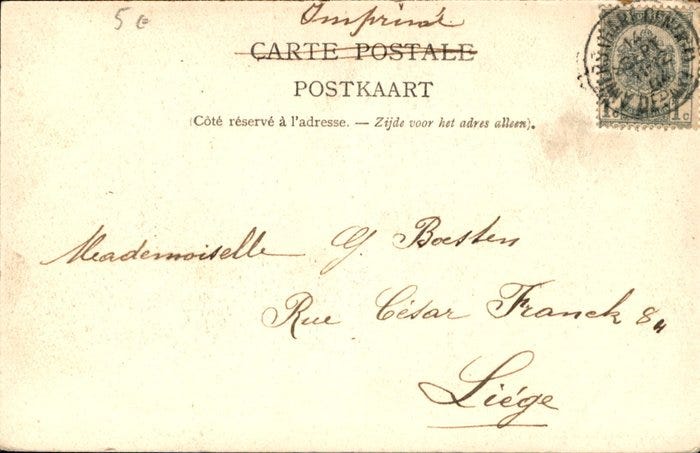 5 €
Imprimé
CARTE POSTALE
POSTKAART
(Côté réservé à l'adresse. — Zijde voor het adres alleen).
1 c 1 c
Mademoiselle G. Boesten
Rue César Franck 84
Liége